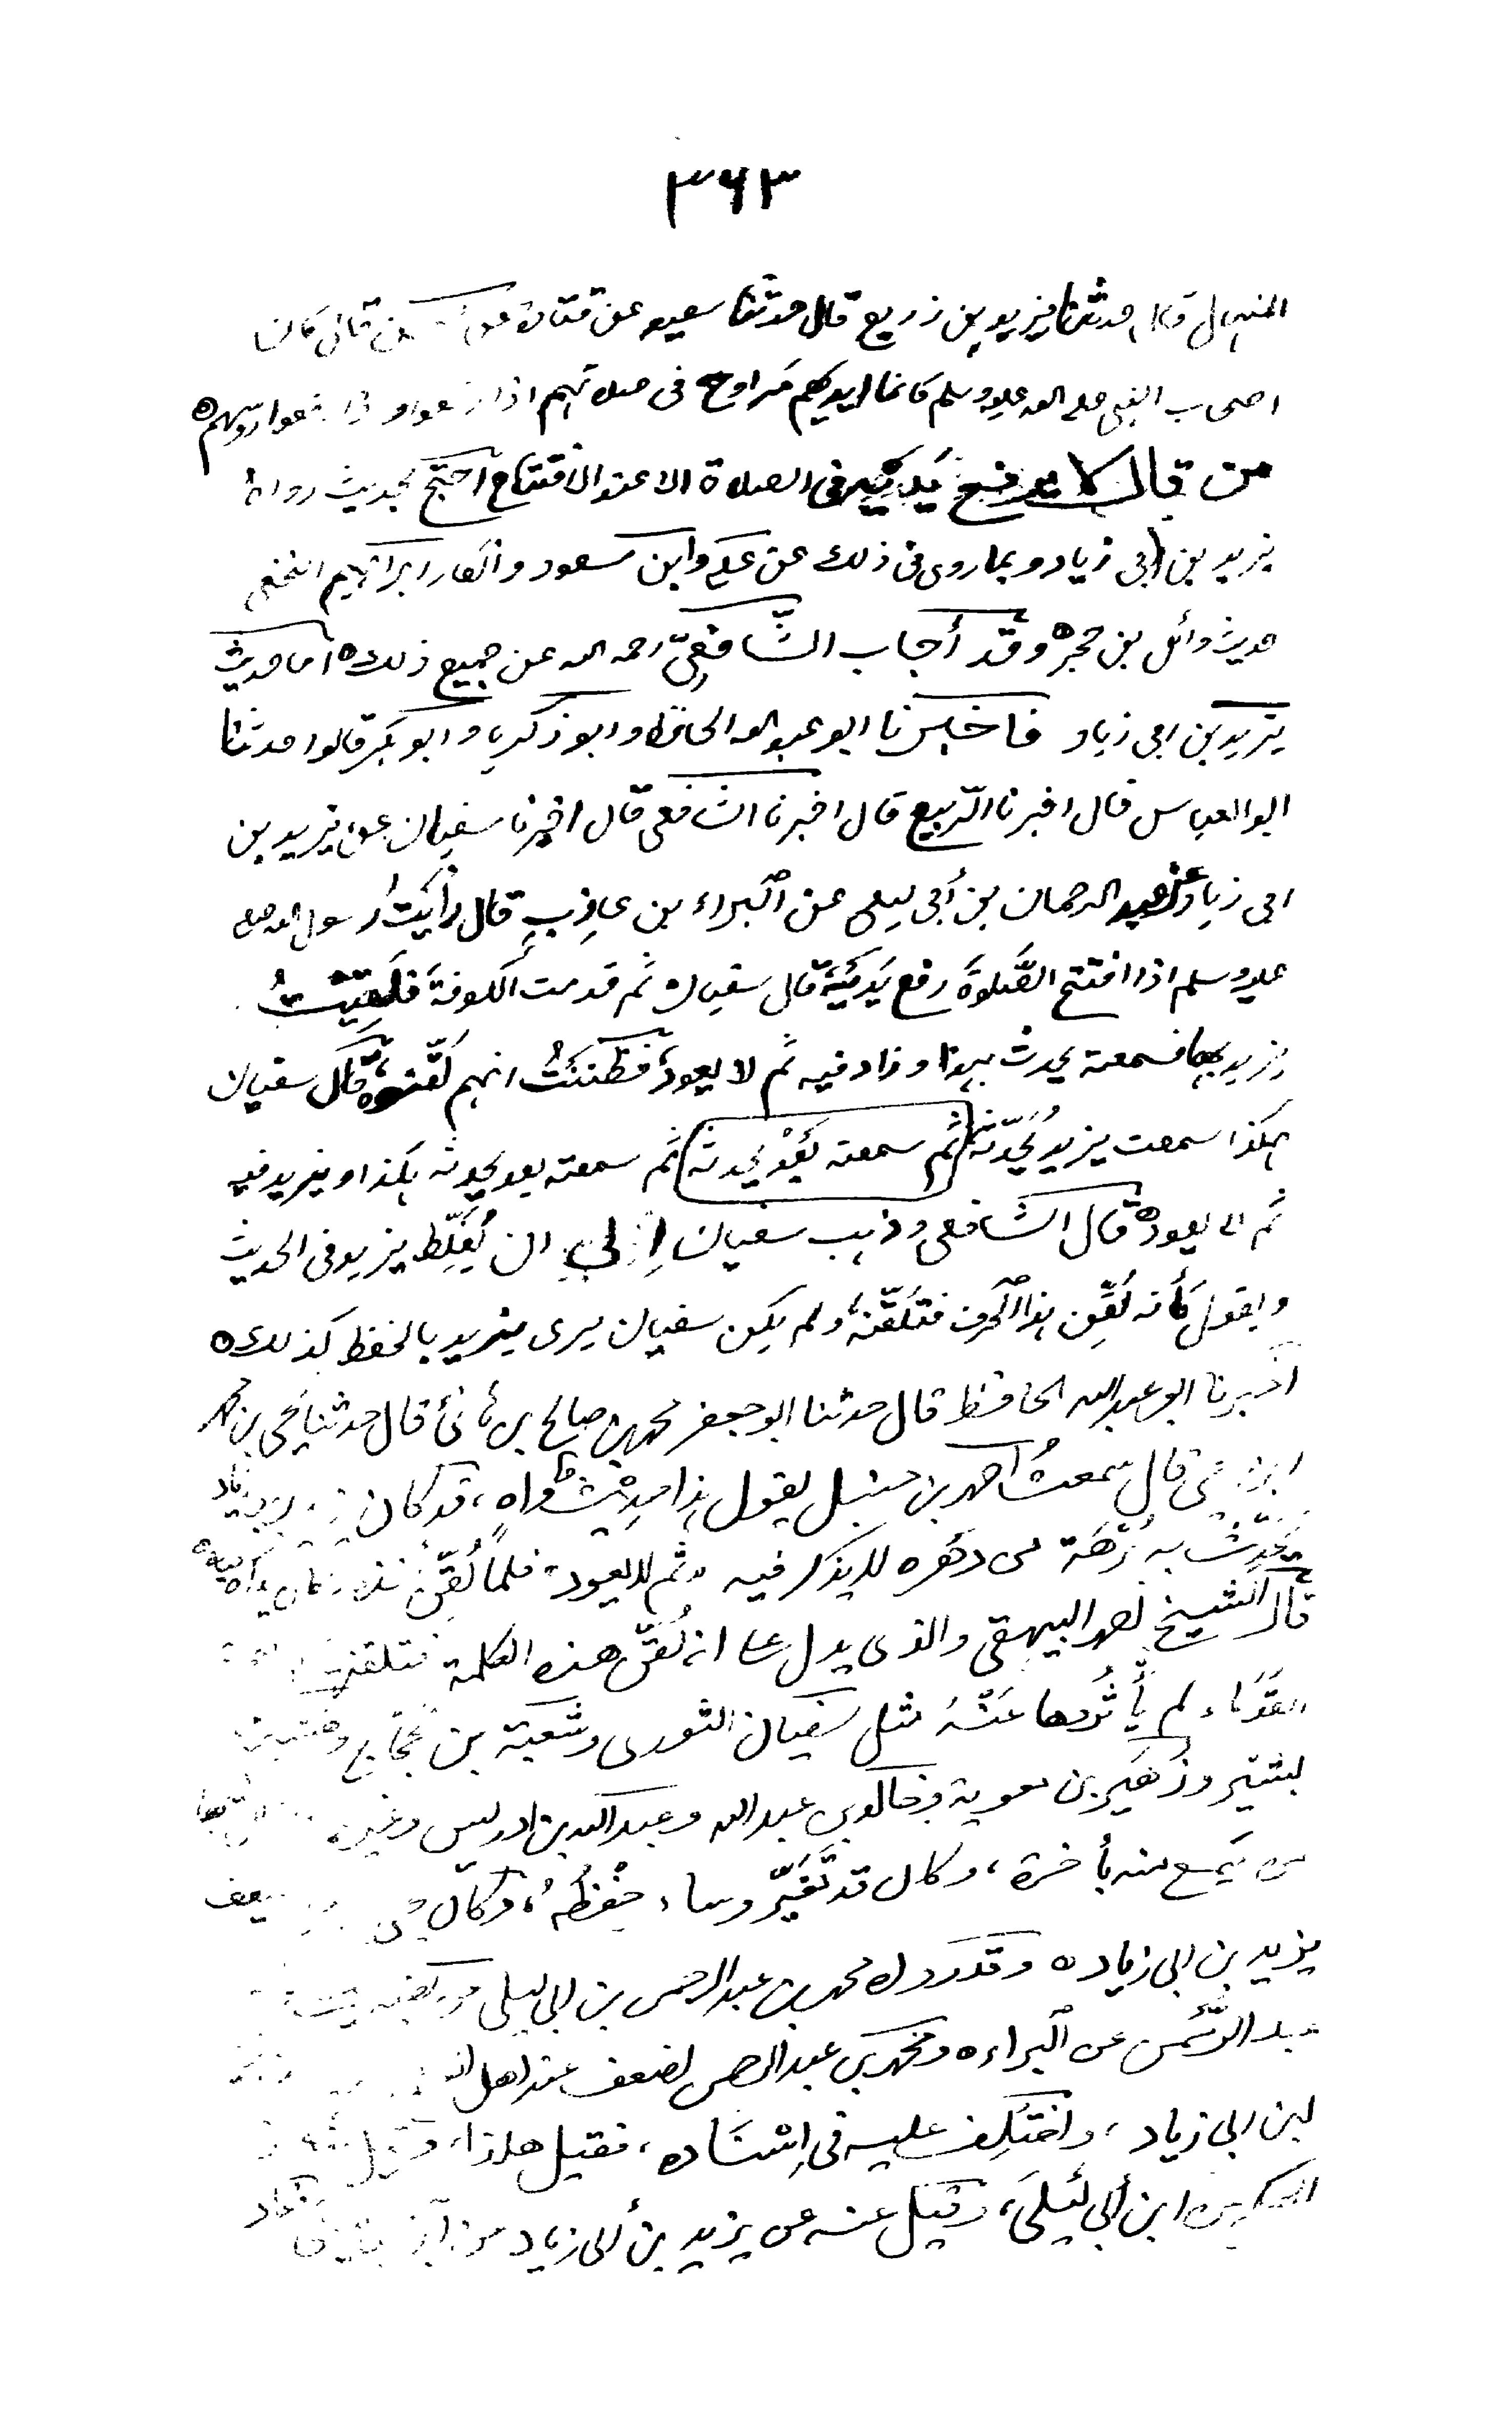 ٣٦٣
المنهال قال حدثنا يزيد بن زريع قال حدثنا سعيد عن قتادة عن الحسن قال كان
اصحاب النبي صلى الله عليه وسلم كانما ايديهم مراوح في صلاتهم اذا ركعوا واذا رفعوا رؤسهم ه
من قال لا يرفع يديه في الصلاة الا عند الافتتاح احتج بحديث رواه
يزيد بن ابي زياد وبما روى في ذلك عن علي وابن مسعود وانكار ابراهيم النخعي
حديث وائل بن حجر ه وقد أجاب الشافعيّ رحمه الله عن جميع ذلك ه أما حديث
يزيد بن ابي زياد فاخبرنا ابو عبد الله الحافظ وابو زكريا وابو بكر قالوا حدثنا
ابو العباس قال اخبرنا الربيع قال اخبرنا الشافعى قال اخبرنا سفيان عن يزيد بن
ابى زياد عن عبد الرحمان بن أبي ليلى عن البراء بن عازبٍ قال رأيتُ رسول الله صلى
عليه وسلم اذا افتتح الصَّلوةَ رفع يَدَيْهِ قال سفيان ثم قدمت الكوفة فلقيتُ
يزيد بها فسمعته يحدث بهذا وزاد فيه ثم لا يعود، فظننتُ انهم لقّنوه ه قال سفيان
هكذا سمعت يزيدُ يُحدّثه (ثم سمعته بَعْدُ يحدثه) ثم سمعته بعد يحدثه هكذا ويزيد فيه
ثم لا يعود ه قال الشافعى وذهب سفيان إلى ان يُغَلِّط يزيد في الحديث
ويقول كأنه لُقِّن هذا الحرف فتلقّنه، ولم يكن سفيان يرى يزيد بالحفظ كذلك ه
اخبرنا ابو عبد الله الحافظ قال حدثنا ابو جعفر محمد بن صالح بن هانئ قال حدثنا يحيى بن محمد
ابن يحيى قال سمعتُ احمد بن حنبل يقول هذا حديث واهٍ، قد كان يزيد
يُحدِّث به بُرْهَة من دَهره لا يذكر فيه ثم لا يعود، فلمّا لُقِّن
قال الشيخ احمد البيهقي والذى يدل على انه لُقّن هذه الكلمة فتلقنها
القدماء لم يأثروها عَنْهُ مثل سفيان الثورى وشعبة بن حجّاج وهشيم بن
بشير وزُهَير بن معوية وخالد بن عبد الله وعبد الله بن ادريس وغيرهم
من سمع منه بأخرة، وكان قد تَغَيَّر وساء حِفْظُهُ، وكان يضعف
يزيد بن ابى زياد ه وقد رواه محمد بن عبد الرحمن بن ابى ليلى
عبد الرَّحمن عن البراء ه ومحمد بن عبد الرحمن اضعف عند اهل
ابن ابى زياد، واختُلِف عليه فى إسْنَاده، فقيل هكذا، وقيل
ابن أبي لَيْلَى، وقيل عنه عن يزيد بن أبى زياد عن ابن